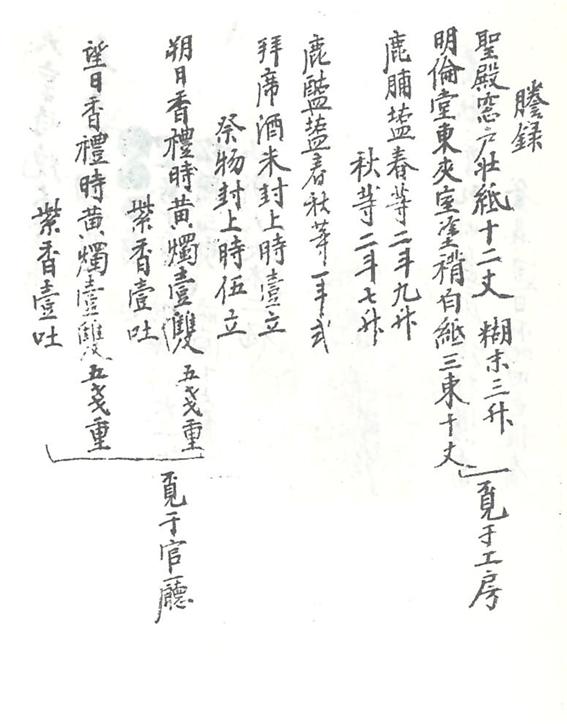 謄録
聖殿窓戶壯紙十二丈 糊末三升
明倫堂東夾室塗褙白紙三束十丈
覓于工房
鹿脯塩春等二斗九升
秋等二斗七升
鹿醢塩春秋等一斗式
拜席酒米封上時壹立
祭物封上時伍立
朔日香禮時黃燭壹雙 五戔重
紫香壹吐
望日香禮時黃燭壹雙 五戔重
紫香壹吐
覓于官廳